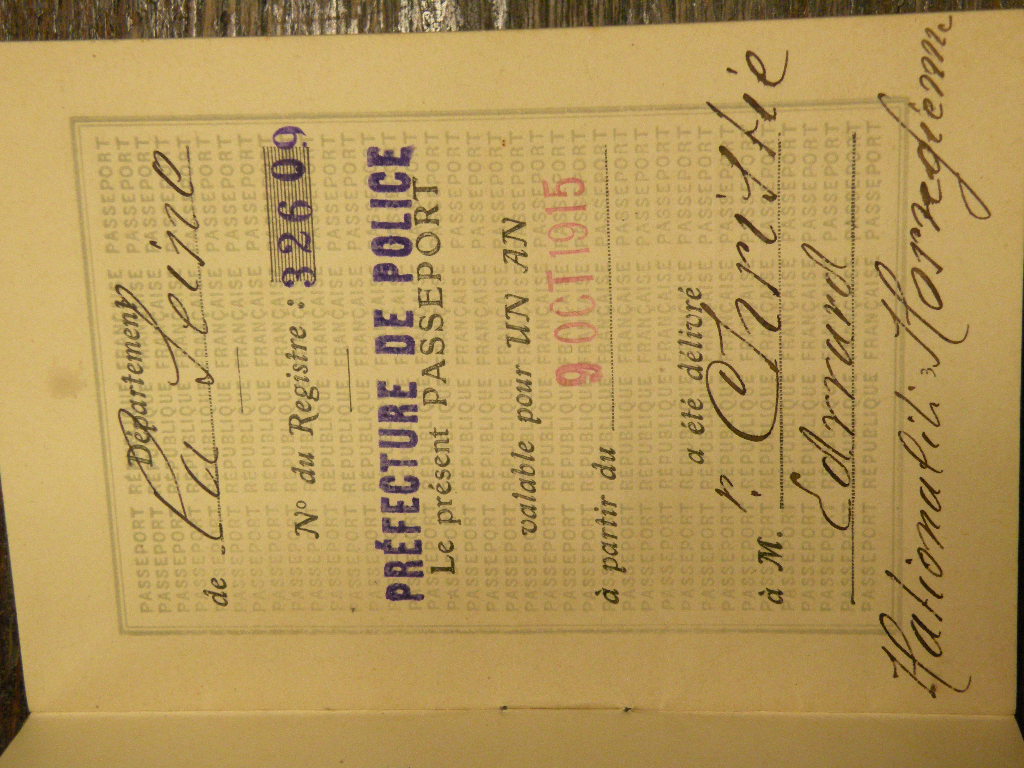 Département
de la Seine
Nº du Registre : 32609
PRÉFECTURE DE POLICE
Le présent PASSEPORT
valable pour UN AN
à partir du 9 OCT 1915
a été délivré
à M. Christie
Edouard
Nationalité Norvégienne
PASSEPORT RÉPUBLIQUE FRANÇAISE PASSEPORT